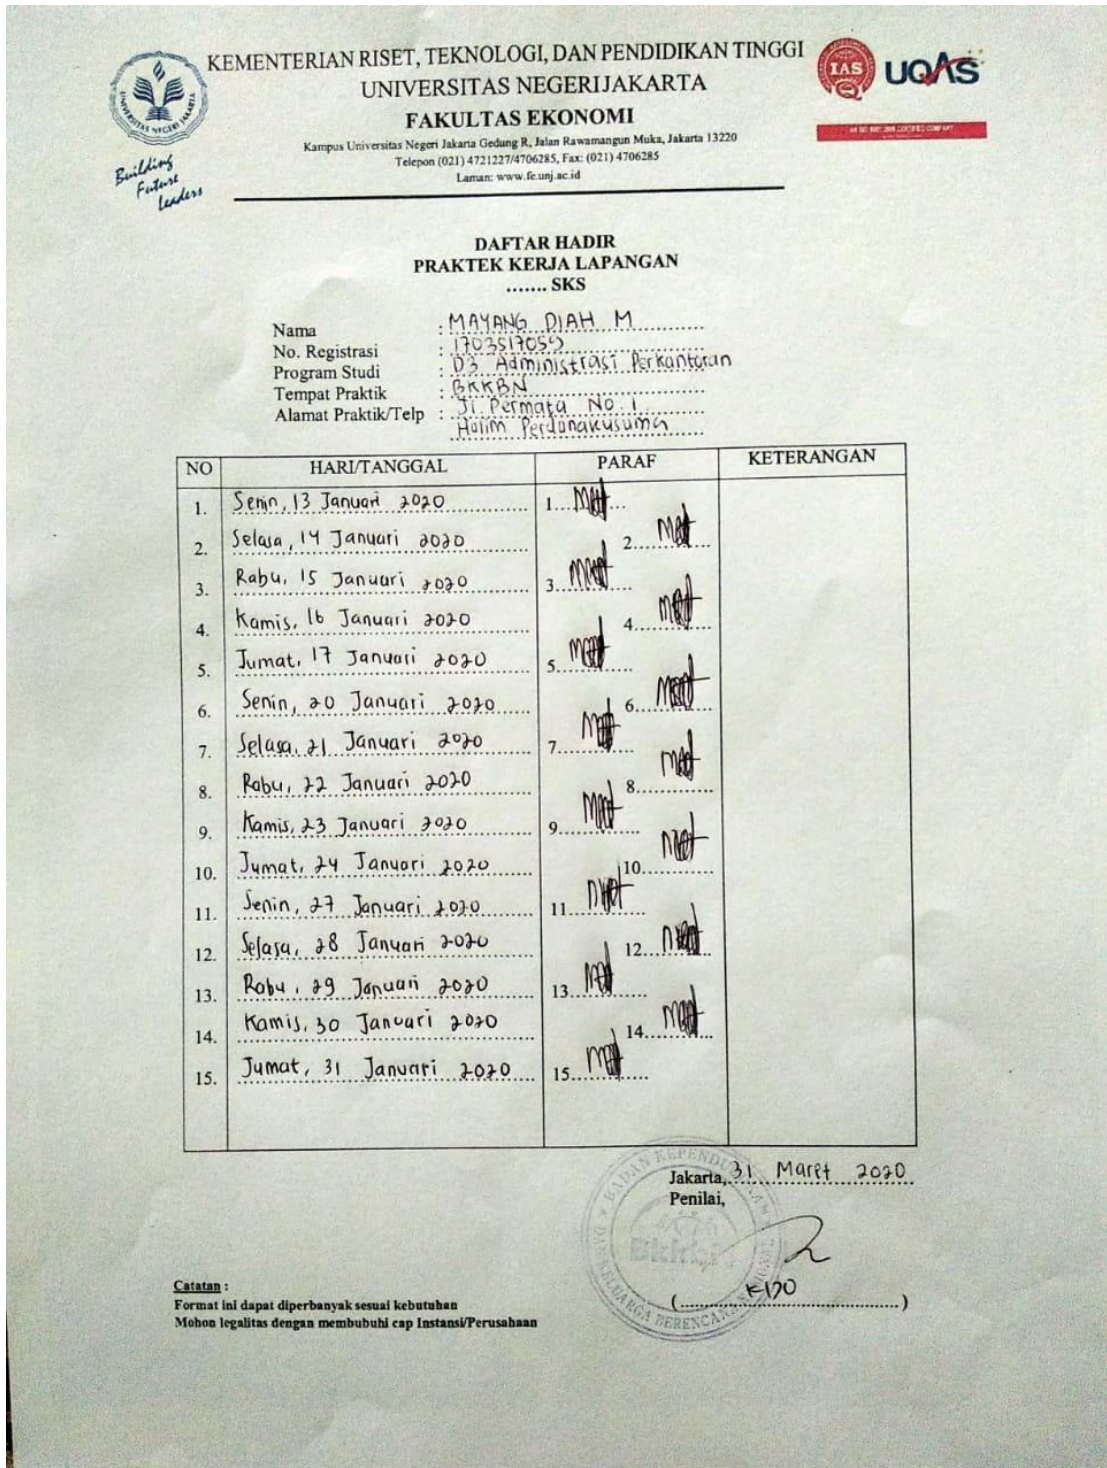 KEMENTERIAN RISET, TEKNOLOGI, DAN PENDIDIKAN TINGGI
UNIVERSITAS NEGERI JAKARTA
FAKULTAS EKONOMI
Kampus Universitas Negeri Jakarta Gedung R, Jalan Rawamangun Muka, Jakarta 13220
Telepon (021) 4721227/4706285, Fax: (021) 4706285
Laman: www.fe.unj.ac.id
UNIVERSITAS NEGERI JAKARTA
Building
Future
Leaders
IAS
UQAS
AN ISO 9001:2008 CERTIFIED COMPANY
DAFTAR HADIR
PRAKTEK KERJA LAPANGAN
....... SKS
Nama : MAYANG DIAH M
No. Registrasi : 1703517059
Program Studi : D3 Administrasi Perkantoran
Tempat Praktik : BKKBN
Alamat Praktik/Telp : Jl. Permata No. 1
Halim Perdanakusuma
NO HARI/TANGGAL PARAF KETERANGAN
1. Senin, 13 Januari 2020 1.
2. Selasa, 14 Januari 2020 2.
3. Rabu, 15 Januari 2020 3.
4. Kamis, 16 Januari 2020 4.
5. Jumat, 17 Januari 2020 5.
6. Senin, 20 Januari 2020 6.
7. Selasa, 21 Januari 2020 7.
8. Rabu, 22 Januari 2020 8.
9. Kamis, 23 Januari 2020 9.
10. Jumat, 24 Januari 2020 10.
11. Senin, 27 Januari 2020 11.
12. Selasa, 28 Januari 2020 12.
13. Rabu, 29 Januari 2020 13.
14. Kamis, 30 Januari 2020 14.
15. Jumat, 31 Januari 2020 15.
Jakarta, 31 Maret 2020
Penilai,
BADAN KEPENDUDUKAN DAN KELUARGA BERENCANA NASIONAL
bkkbn
Catatan :
Format ini dapat diperbanyak sesuai kebutuhan
Mohon legalitas dengan membubuhi cap Instansi/Perusahaan